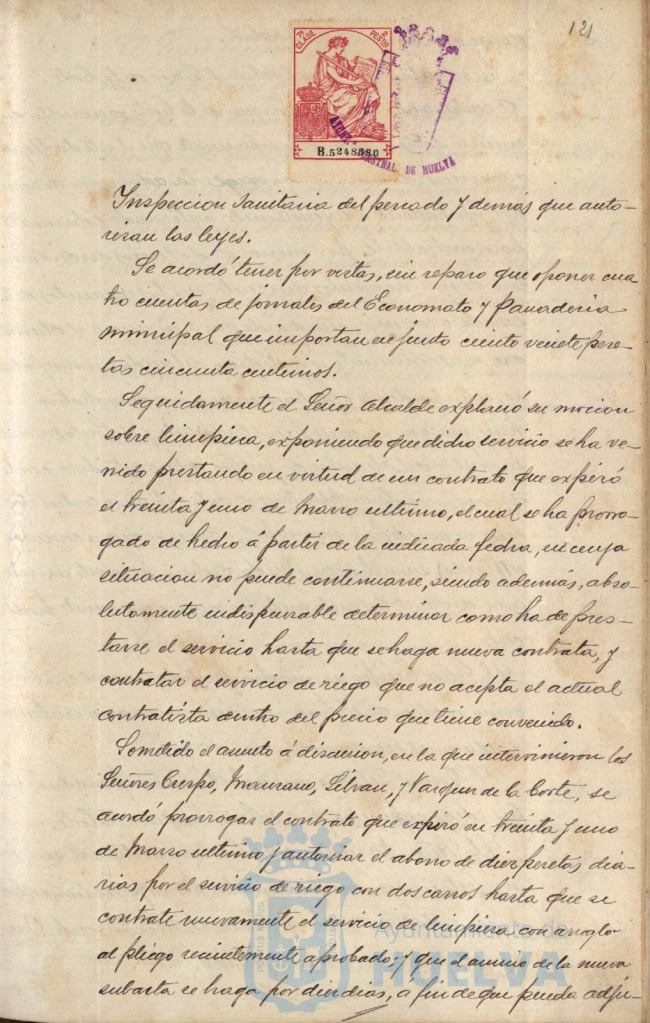 121
7ª CLASE 2 PESTS
B.5248580
AYUNTº CONSTNAL DE HUELVA
Inspeccion Sanitaria del pescado y demás que auto-
rizan las leyes.
Se acordó tener por vistas, sin reparo que oponer cua
tro cuentas de jornales del Economato y Panaderia
municipal que importan en junto ciento veinte pese-
tas cincuenta centimos.
Seguidamente el Señor Alcalde explanó su mocion
sobre limpieza, exponiendo que dicho servicio se ha ve
nido prestando en virtud de un contrato que expiró
el treinta y uno de Marzo ultimo, el cual se ha prorro
gado de hecho á partir de la indicada fecha, en cuya
situacion no puede continuarse, siendo además, abso-
lutamente indispensable determinar como ha de pres-
tarse el servicio hasta que se haga nueva contrata, y
contratar el servicio de riego que no acepta el actual
contratista dentro del precio que tiene convenido.
Sometido el asunto á discusion, en la que intervinieron los
Señores Crespo, Manzano, Silvan, y Vazquez de la Corte, se
acordó prorrogar el contrato que expiró en treinta y uno
de Marzo ultimo y autorizar el abono de diez pesetas dia-
rias por el servicio de riego con dos carros hasta que se
contrate nuevamente el servicio de limpieza con arreglo
al pliego recientemente aprobado; y que el anuncio de la nueva
subasta se haga por diez dias, a fin de que pueda adju-
Ayuntamiento de
HUELVA